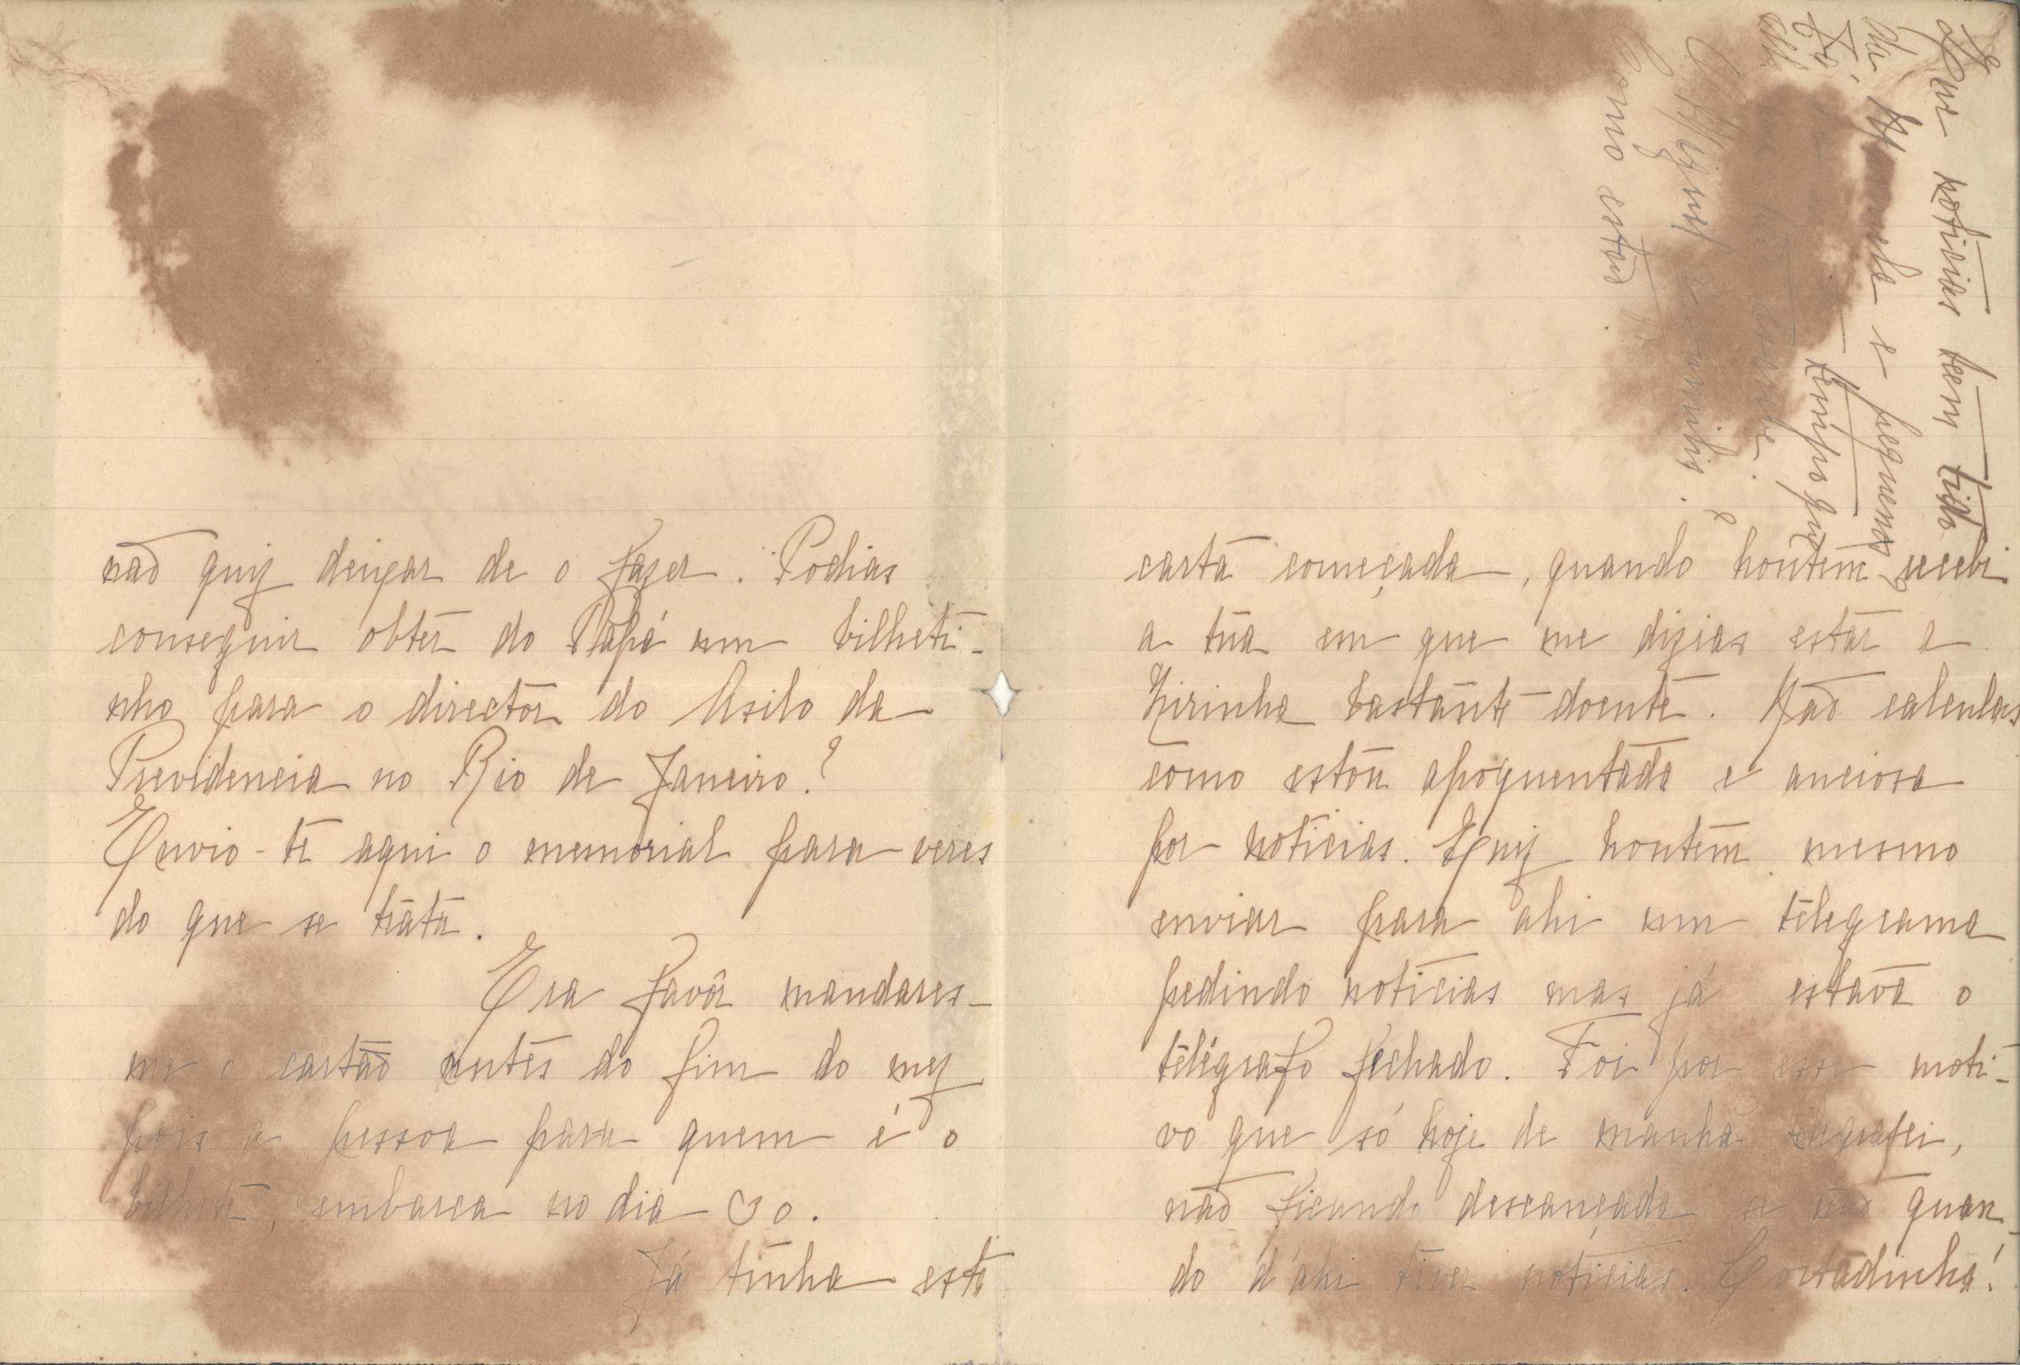 não quiz deixar de o fazer. Podias
conseguir obter do Papá um bilheti-
nho para o director do Asilo da
Previdencia no Rio de Janeiro?
Envio-te aqui o memorial para veres
do que se trata.
Era favôr mandares-
me o cartão antes do fim do mez
pois a pessoa para quem é o
bilhete, embarca no dia 30.
Já tinha esta
carta começada, quando hontem recebi
a tua em que me dizias estár a
Zirinha bastante doente. Não calculas
como estou apoquentada e anciosa
por noticias. Quiz hontem mesmo
enviar para ahi um telegrama
pedindo noticias mas já estava o
telégrafo fechado. Foi por esse moti-
vo que só hoje de manhã telegrafei,
não ficando descançada se não quan-
do d'ahi tiver noticias. Coitadinha!
Que noticias teem tido
da e pequenos?
tempo que
Como estão